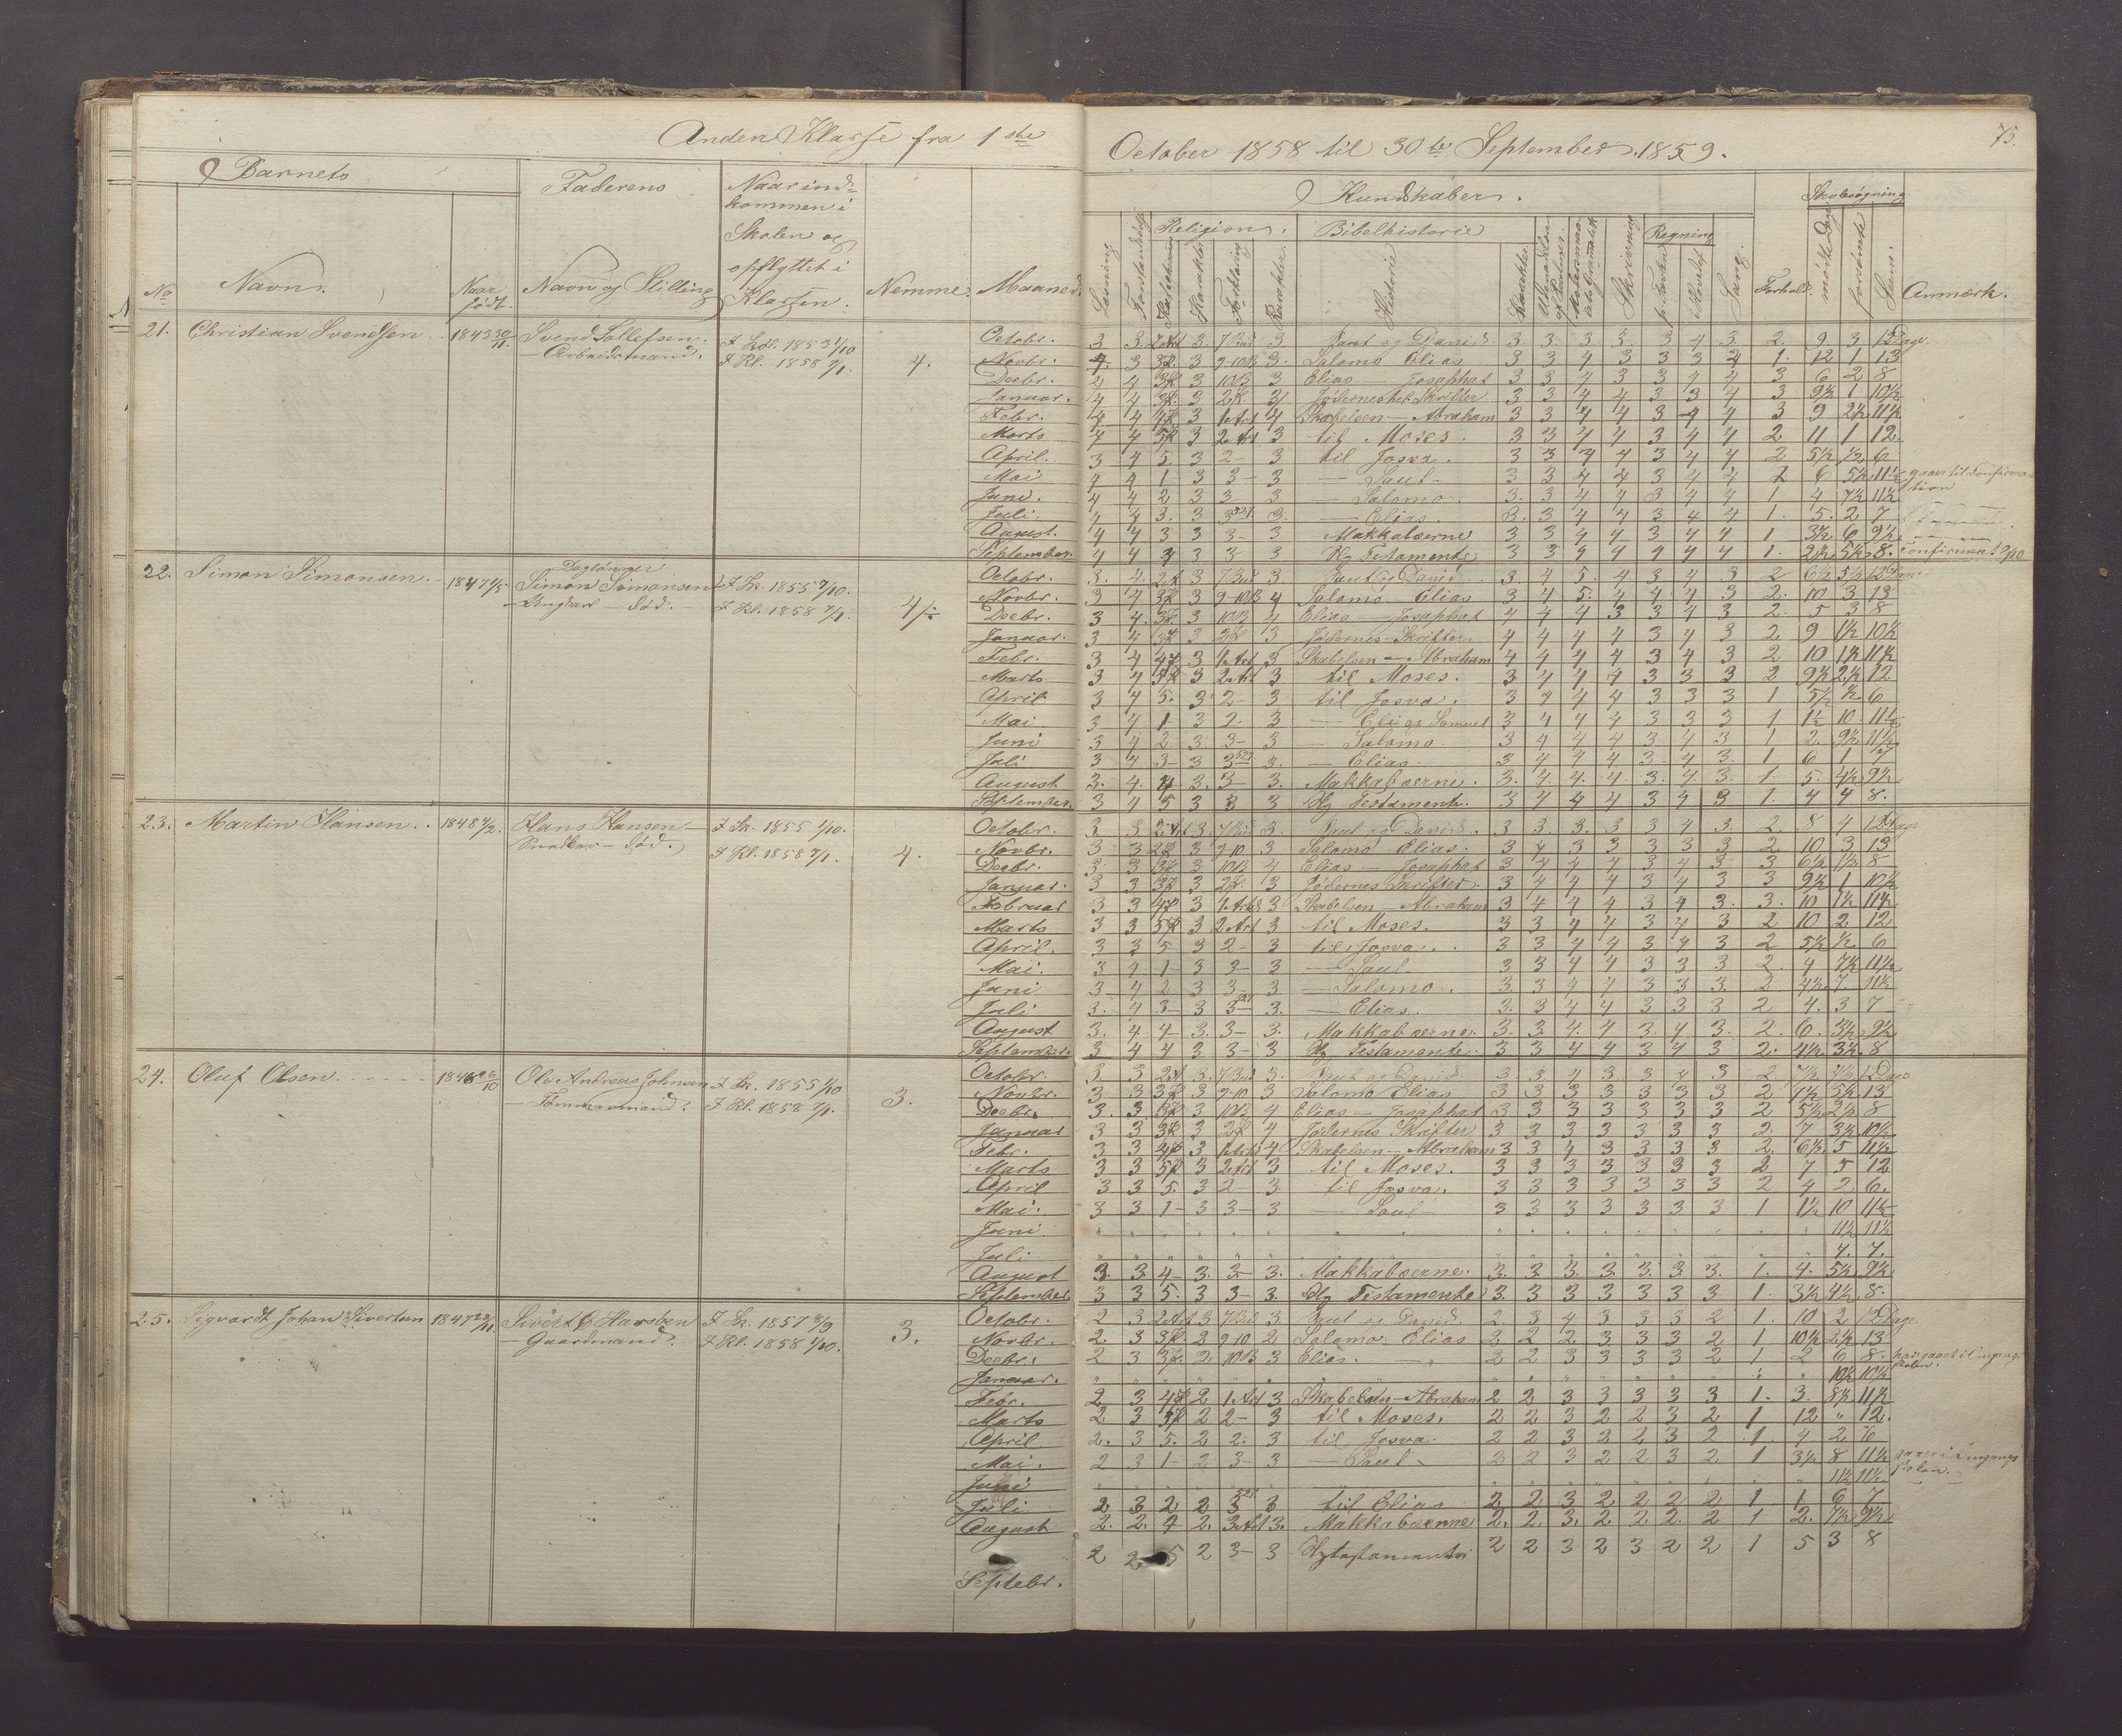 Anden Klasse fra 1ste October 1858 til 30te September 1859.
75.
Barnets
Faderens
Naar ind-
kommen i
Skolen og
opflyttet i
Klassen.
No
Navn.
Naar født.
Navn og Stilling
Nemme.
Maaned.
Kundskaber.
Religion.
Bibelhistorie
Regning
Skolesøgning
Læsning
Forklaring
Karakter.
Historie
Karakter.
Skrivning
Sang.
Forhold.
mødte Dage
forsømte
Sum.
Anmærk.
21. Christian Svendsen. 1843 30/11. Svend Tollefsen. I Skol. 1853 1/10
— Arbeidsmand. I Kl. 1858 7/1. 4.
Octobr. 3 3. 3. 3 Saul og David 3. 3. 3. 3. 3 4 3. 2. 9. 3 12 Dage.
Novbr. 4. 3 3 9-10B 3. Salomo Elias 3 3 4 3 3 3 2 1. 12 1 13
Decbr. 4 4 3 10B 3 Elias — Josaphat 3 3 4 3 3 4 4 3 6 2 8
Januar. 4 4 3 Jødernes hel. Skrifter 3 3 4 4 3 3 4 3 9½ 1 10½
Febr. 4 4 3 1 Art 4 Skabelsen — Abraham 3 3 4 4 3 4 4 3 9 2½ 11½
Marts 4 4 3 2 Art 3 til Moses. 3 3 4 4 3 4 4 2 11 1 12.
April. 3 4 5. 3 2 – 3 til Josva. 3 3 4 4 3 4 4 2 5½ ½ 6
Mai 4 4 1 3 3 – 3 — Saul – 3 3 4 4 3 4 4 2 6 5½ 11½ gaaer til Confirma-
tion
Juni. 4 4 2 3 3 – 3 — Salomo. 3. 3 4 4 3 4 4 1. 4 7½ 11½
Juli. 4 4 3. 3 3 3. — Elias. 3. 3 4 4 3 4 4 1. 5. 2 7
August. 4 4 3 3 3 – 3 Makkabæerne 3 3 4 4 3 4 4 1 3½ 6 9½
September. 4 4 4 3 3 – 3 Ny Testamente 3 3 4 4 4 4 4 1. 2½ 5½ 8. Confirmeret 2/10
22. Simon Simonsen. 1847 2/5 Daglønner
Simon Simonsen I Sk. 1855 9/10.
— Ungkarl — død. — I Kl. 1858 7/1. 4/÷
Octobr. 3. 4. 3 3. Saul og David 3. 4 5. 4. 3 4 3 2 6½ 5½ 12 Dage
Novbr. 3 4 3 9-10B 4 Salomo Elias 3 4 5. 4 4 4 3 2. 10 3 13
Decbr. 3 4. 3 10B 4 Elias — Josaphat 4 4 4 3 3 4 3 2. 5 3 8
Januar. 3 4 3 3 Jødernes Skrifter 4 4 4 4 3 4 3 2 9 1½ 10½
Febr. 3 4 3 1 Art 3 Skabelsen — Abraham 4 4 4 4 3 4 3 2 10 1½ 11½
Marts 3 4 3 2 Art 3 til Moses. 3 4 4 4 3 3 3 2 9½ 2½ 12
April 3 4 5. 3 2 – 3 til Josva. 3 4 4 4 3 3 3 1 5½ ½ 6
Mai 3 4 1 3 2. 3 — Eli og Samuel 3 4 4 4 3 3 3 1 1½ 10. 11½
Juni 3 4 2. 3. 3 – 3 — Salomo. 3 4 4 4 3 4 3 1 2. 9½ 11½
Juli 3 4 3 3 3 3. — Elias. 3 4 4 4 3 4 3. 1 6 1 7
August 3. 4. 4 3. 3 3. Makkabæerne. 3. 4. 4. 4. 3. 4. 3. 1. 5. 4½ 9½
September. 3 4 5 3 3 3 Ny Testament. 3 4 4 4 3 4 3 1. 4 4 8.
23. Martin Hansen. 1848 4/2. Hans Hansen — I Sk. 1855 1/10.
Snedker — død. I Kl. 1858 7/1. 4.
Octobr. 3 3 3. 3. Saul og David. 3 3. 3. 3 3 4 3. 2. 8 4 12 Dage
Novbr. 3 3 3 9-10 3 Salomo Elias. 3 4 3 3 3 3 3 2 10 3 13
Decbr. 3. 3 3 10B 4 Elias — Josaphat 3 4 4 4 3 4 3 3 6½ 1½ 8
Januar. 3 3 3 3 Jødernes Skrifter. 3 4 4 4 3 4 3 3 9½ 1 10½
Februar 3 3 3 3 Skabelsen — Abraham 3 4 4 4 3 4 3. 3. 10 1½ 11½
Marts 3 3 3 2 Art 3 til Moses. 3 3 4 4 3 4 3 2. 10 2 12
April. 3 3 5 3 2 – 3 til Josva. 3 3 4 4 3 4 3 2 5½ ½ 6
Mai. 3 4 1 3 3 – 3 — Saul 3 3 4 4 3 3 3 2. 4 7½ 11½
Juni 3 4 2 3 3. 3 — Salomo. 3. 3 4 4 3 3 3. 2 4½ 7 11½
Juli 3. 4 3 3 3 3. — Elias. 3. 3 4 4 3 3 3 2 4. 3 7
August 3. 4 4 3. 3 – 3. Makkabæerne. 3. 3. 4. 4 3. 4 3. 2. 6. 3½ 9½
September. 3 4 4 3 3 – 3 Ny Testamente. 3 3 4 4 3 4 3 2. 4½ 3½ 8
24. Oluf Olsen. 26/10 Ole Andreas Johnsen I Sk. 1855 1/10
— Tømmermand. I Kl. 1858 7/1. 3.
Octobr. 3 3 3. 3. Saul og David. 3. 3 4 3 3 4 3 2 12 Dage
Novbr. 3 3 3 9-10 3 Salomo Elias 3 3 3 3 3 3 3 2 7½ 5½ 13
Decbr. 3. 3 3 10B 4 Elias — Josaphat 3 3 3 3 3 3 3 2 5½ 2½ 8
Januar 3 3 3 4 Jødernes Skrifter 3 3 3 3 3 3 3 2. 7 3½ 10½
Febr. 3 3 3 4 Skabelsen — Abraham 3 3 4 3 3 3 3 2. 6½ 5 11½
Marts 3 3 3 2 Art 3 til Moses. 3 3 3 3 3 3 3 2 7 5 12
April 3 3 5. 3 2 – 3. til Josva. 3 3 3 3 3 3 3 2 4 2. 6.
Mai. 3 3 1 3 3 – 3 — Saul 3 3 3 3 3 3 3 1 1½ 10 11½
Juni 11½ 11½
Juli 7. 7.
August 3. 3 4 3. 3 3. Makkabæerne. 3. 3. 3. 3. 3. 3. 3. 1. 4. 5½ 9½
September 3 3 5. 3 3 – 3. Ny Testamente 3 3 3 3 3 3 3 1. 3½ 4½ 8.
25. Sigvardt Johan Sivertsen 1847 I Sk. 1857 8/9
— Gaardmand. I Kl. 1858 1/10. 3.
Octobr. 2 3 3 3 Saul og David. 2. 3 4 3 3 3 2 1. 10 2 12 Dage
Novbr. 2. 3 3 9-10 2 Salomo Elias 2. 2 2 3 3 3 2 1 10½ 2½ 13
Decbr. 2 3 2 10B 3 Elias. — 2 2 3 3 3 3 2 1 2 6 8. har gaaet i Omgangs-
skolen.
Januar. 10½ 10½
Febr. 2 3 2 1 Art 3 Skabelsen — Abraham 2 2 3 3 3 3 3 1. 3. 8½ 11½
Marts 2 3 2 2 – 3 til Moses. 2 2 3 2 2 3 2 1 12 " 12.
April 2. 3 5. 2 2. 3 til Josva. 2 2 3 2 2 3 2 1. 4 2 6
Mai. 2 3 1 2 3 – 3 — Saul 2 2 3 2 2 3 2 1 3½ 8 11½ gaaer i Omgangs
skolen.
Juni 11½ 11½
Juli 2 3 2 2 3 3 til Elias 2 2 3 2 2 2 2 1 1 6 7
August 2. 2. 4 2. 3 Art 3. Makkabæerne 2. 2. 3. 2. 2. 2. 2 1 2. 7½ 9½
Septebr. 2 2 5 2 3 – 3 Ny testamente 2 2 3 2 3 2 2 1 5 3 8